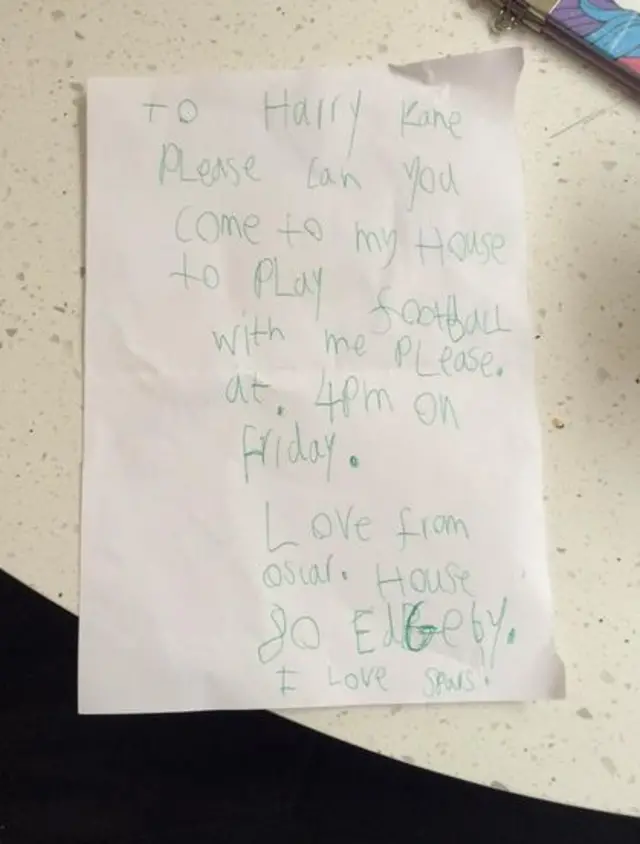 To Harry Kane
PLease can you
come to my House
to PLay football
with me PLease.
at. 4pm on
friday.
Love from
oscar. House
80 EdGeby.
I Love spurs!